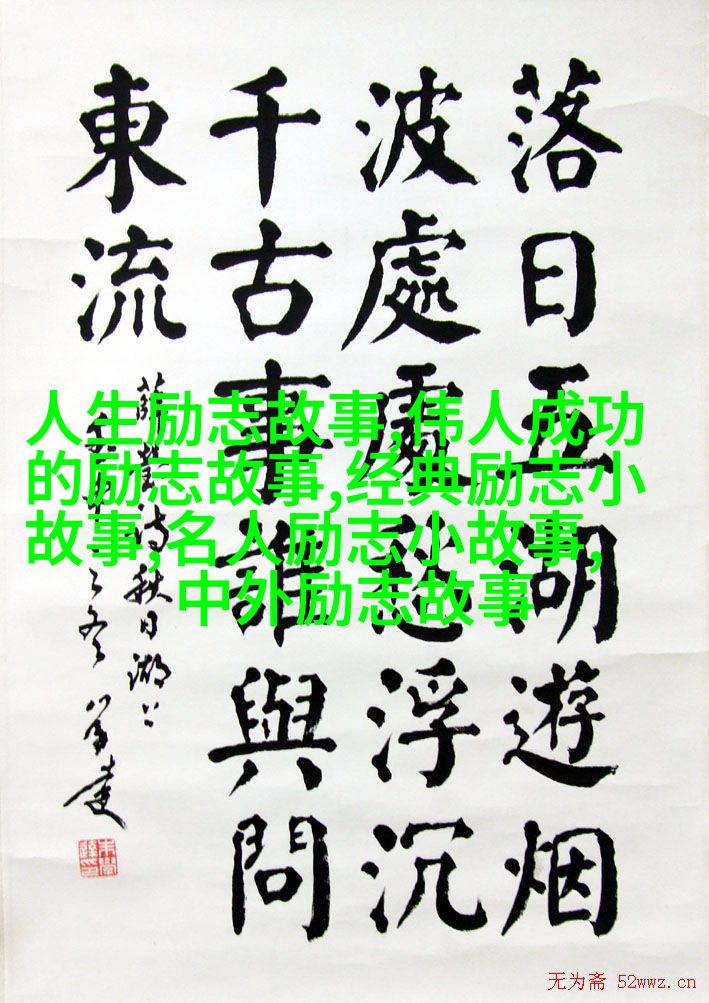 落日五湖遊烟
波處處愁浮沉
千古事誰與問
東流
薛莹詩秋日湖上
人生励志故事,伟人成功
的励志故事,经典励志小
故事,名人励志小故事,
中外励志故事
无为斋 52wwz.cn